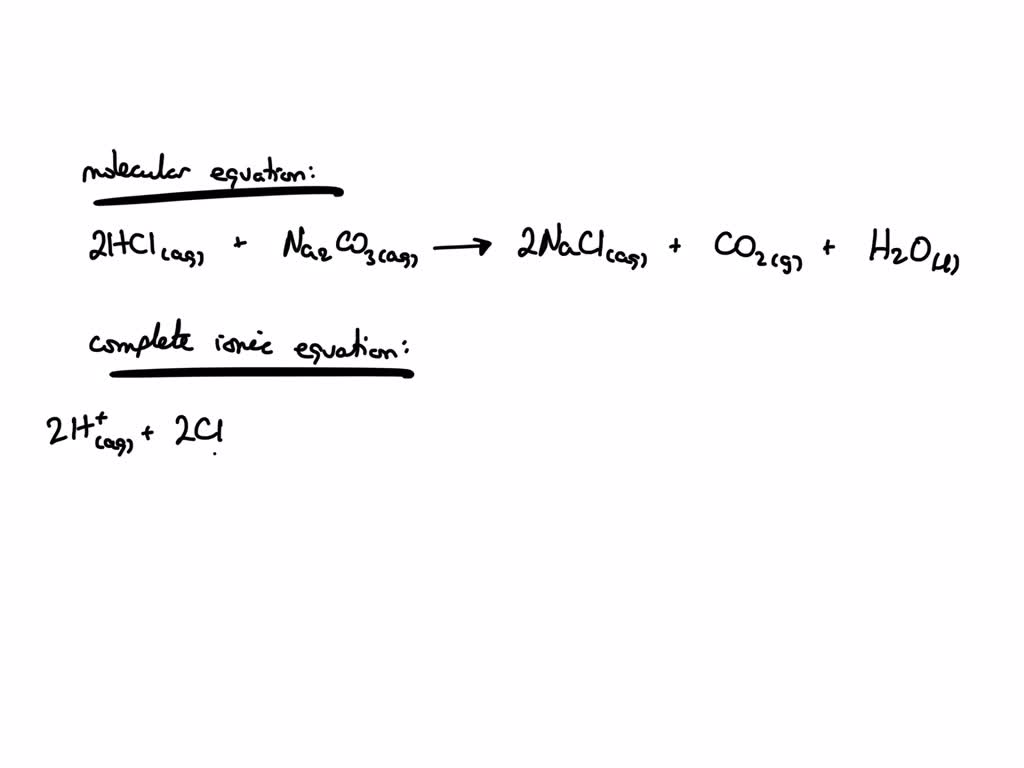 molecular equation:
2HCl(aq) + Na₂CO₃(aq) → 2NaCl(aq) + CO₂(g) + H₂O(l)
complete ionic equation:
2H⁺(aq) + 2Cl